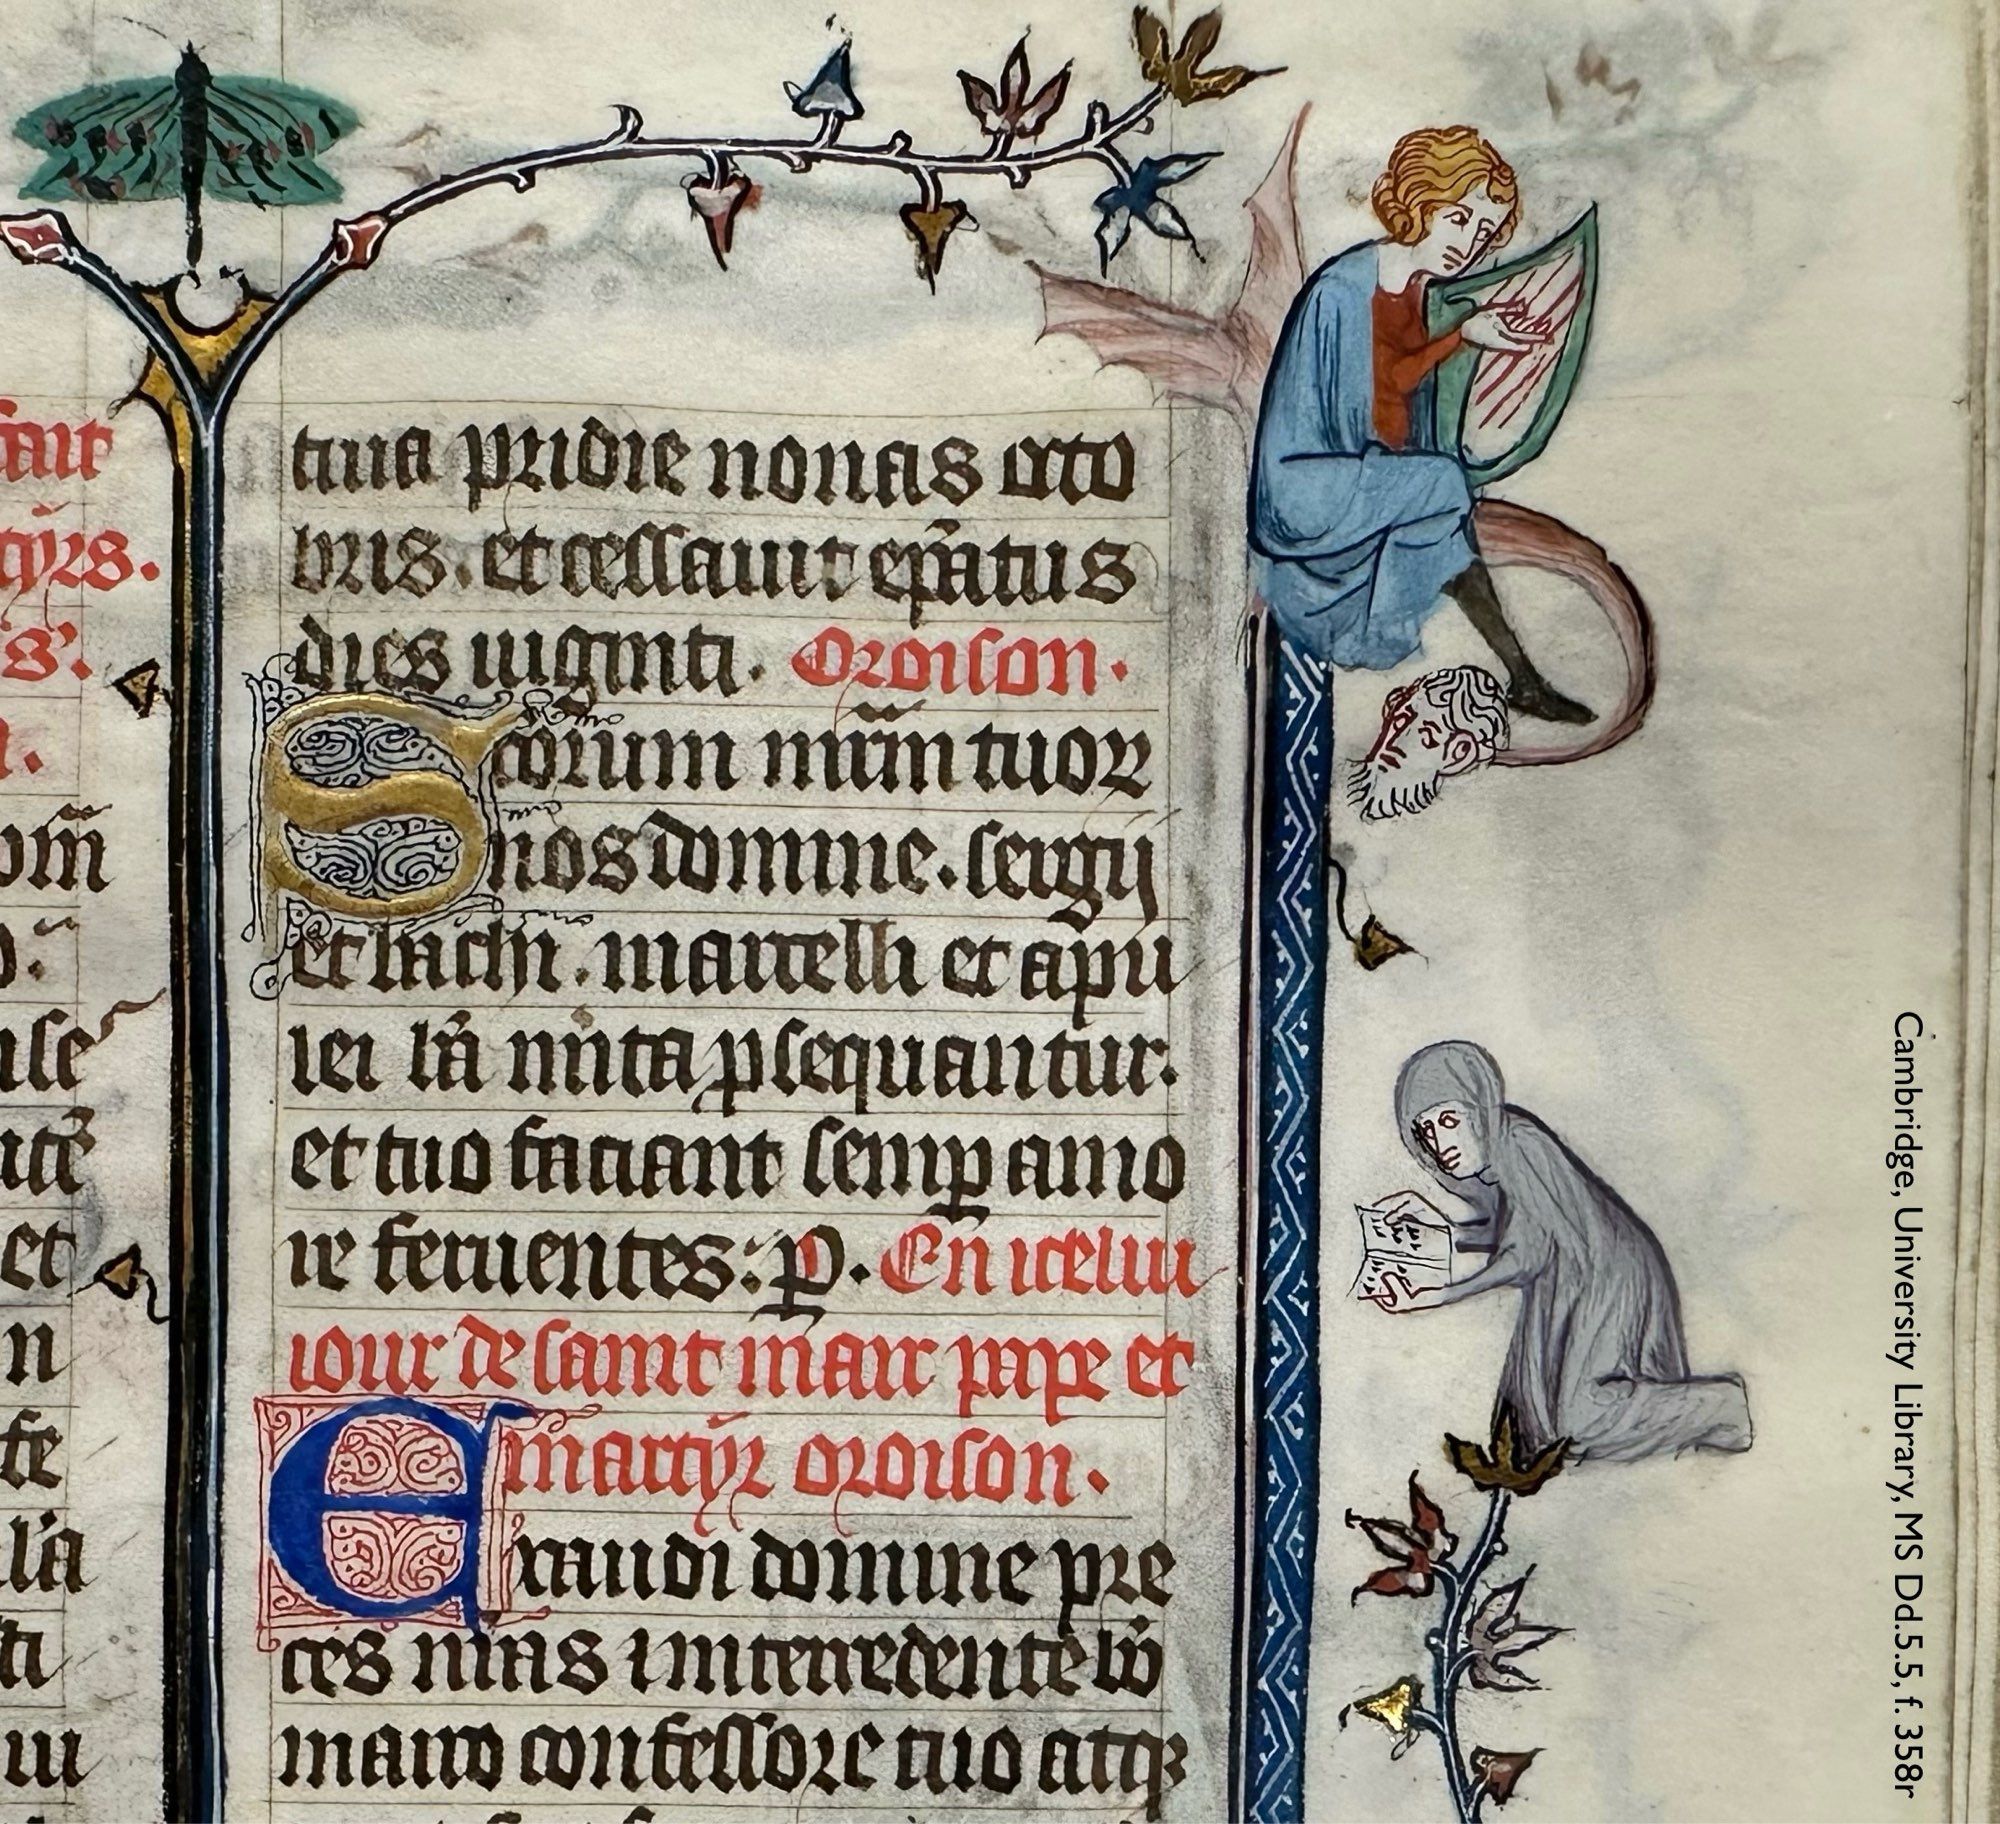 fait
tyrs.
s'.
om̄
et
n
fe
la
ti
tiua pridie nonas octo
bris. et cessauit ep̄atus
dies uiginti. Oroison.
Sc̄orum mr̄m tuoꝝ
nos domine. sergij
et bachi. marcelli et apu
lei bā mr̄ita ꝓsequantur.
et tuo faciant semꝑ amo
re feruentes: ꝑ. En icelui
iour de saint marc pape et
martyr oroison.
Exaudi domine pre
ces nr̄as interuedentē bō
marco confessore tuo atqꝫ
Cambridge, University Library, MS Dd.5.5, f. 358r